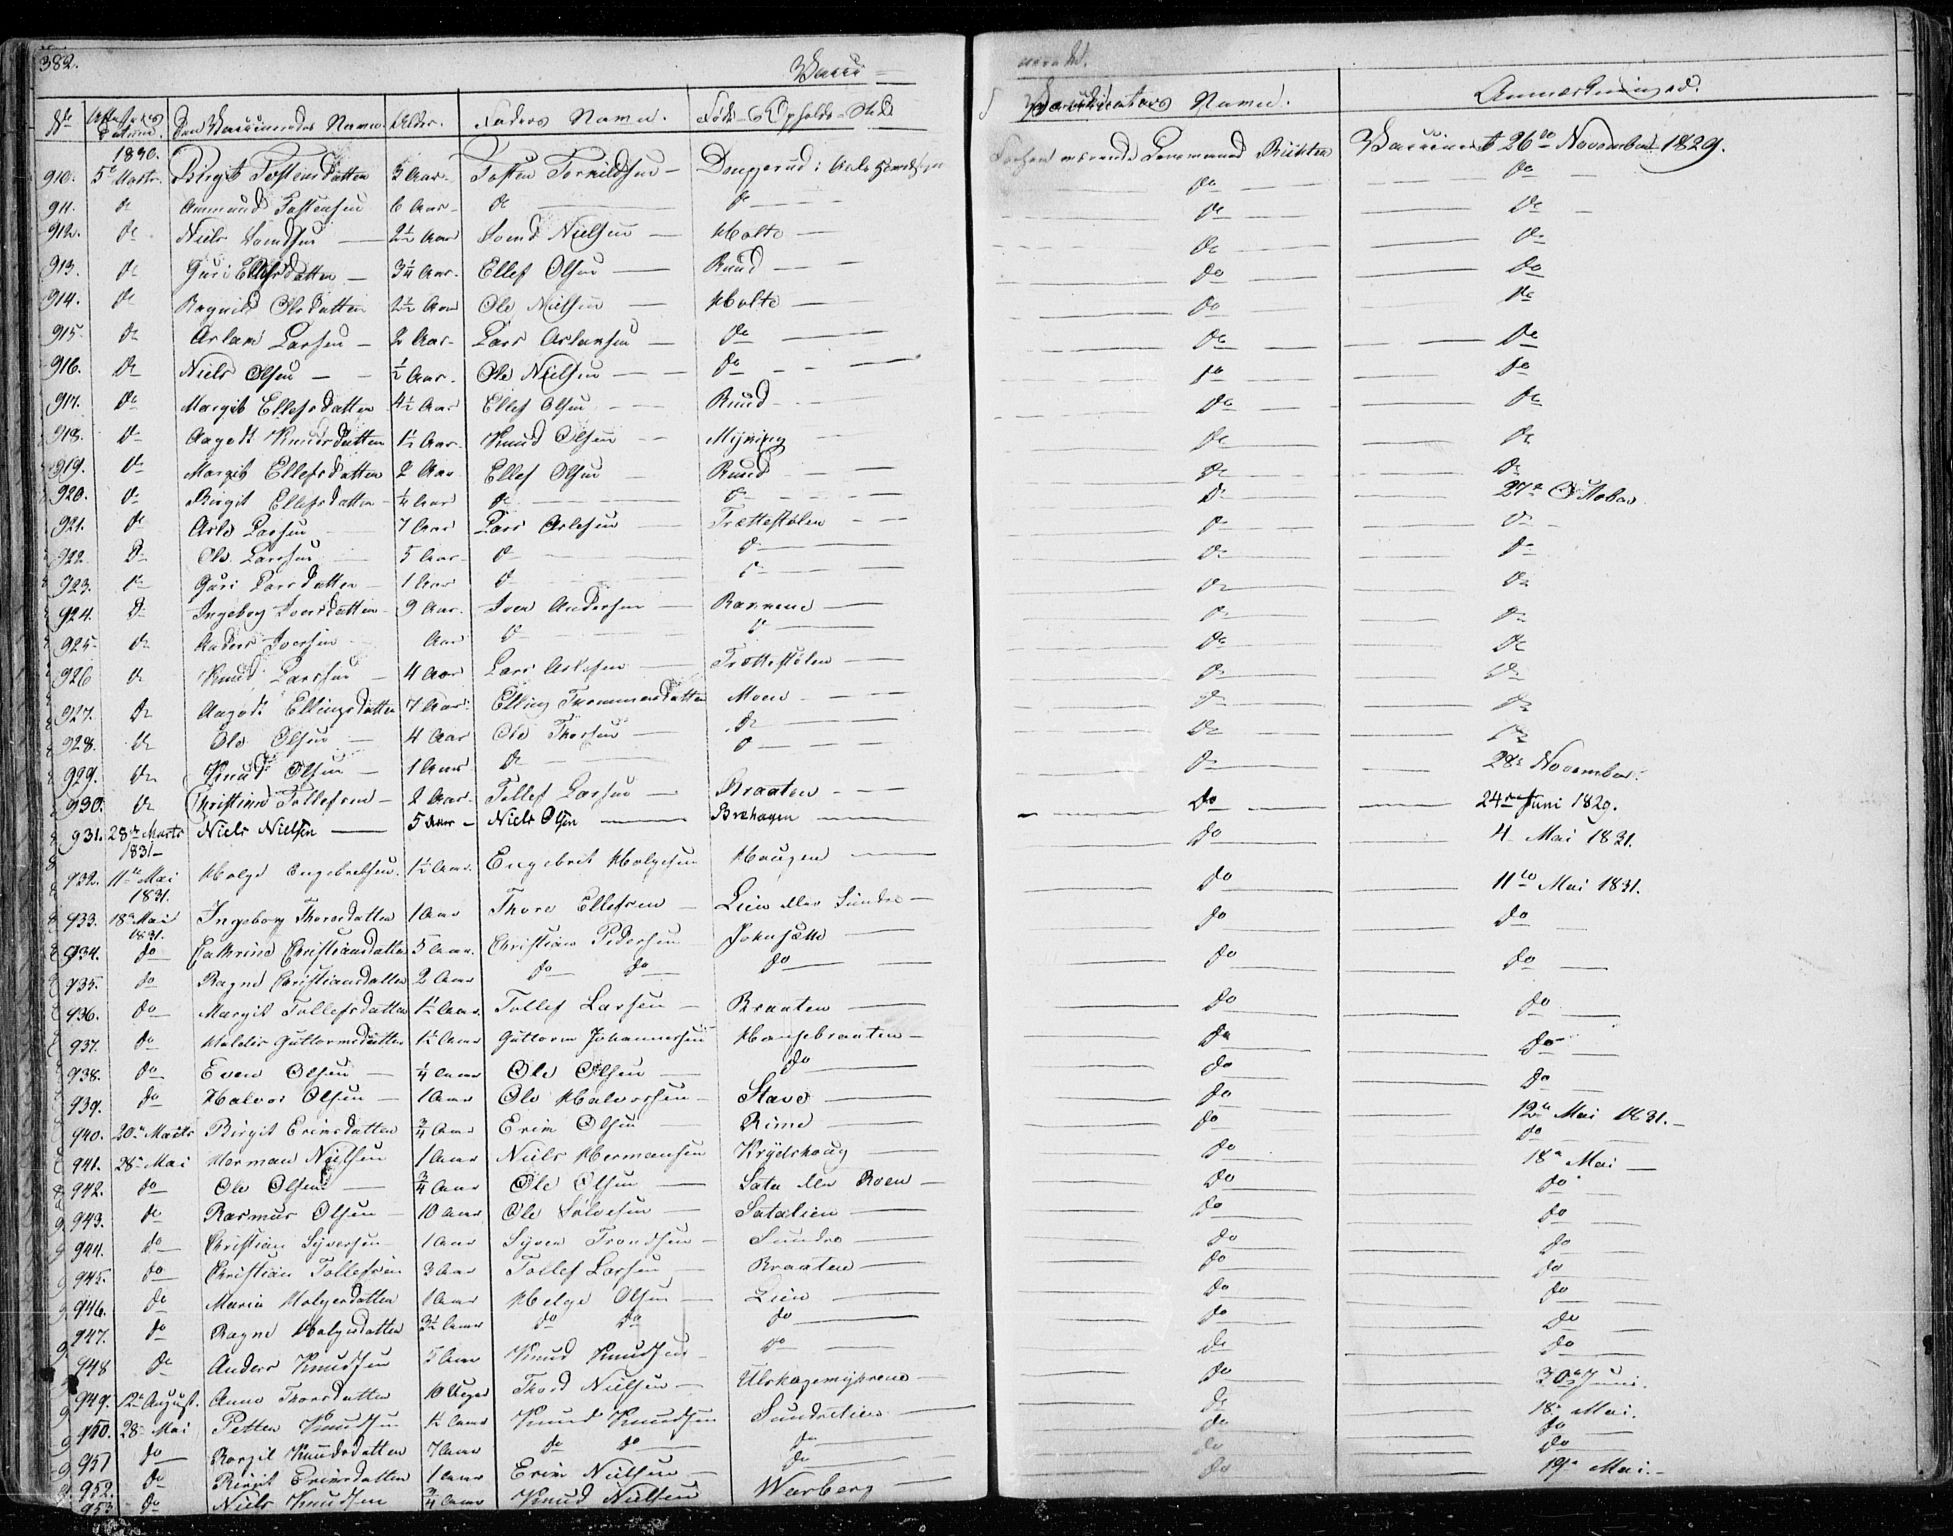 382. Vacci=
neerte.
No Attestens Datum. Den Vaccineredes Navn. Alder. Faders Navn. Føde- og Opholds-Sted. Vaccinators Navn. Anmærkninger.
1830.
910. 5te Marts. Birgit Tostensdatter 3 Aar Tosten Torkildsen Vaccineret 26de November 1829.
911. do Ammund Tostensen 6 Aar do do do do
912. do Niels Svendsen 2½ Aar Svend Nielsen Holte do do
913. do Guri Ellefsdatter 3¼ Aar Ellef Olsen Ruud do do
914. do Ragnild Olsdatter 2½ Aar Ole Nielsen Holte do do
915. do Aslam Larsen 2 Aar Lars Aslamsen do do do
916. do Niels Olsen ½ Aar Ole Nielsen do do do
917. do Margit Ellefsdatter 4½ Aar Ellef Olsen Ruud do do
918. do Aagodt Knudsdatter 1½ Aar Knud Olsen Myking do do
919. do Margit Ellefsdatter 2 Aar Ellef Olsen Ruud do do
920. do Birgit Ellefsdatter ¼ Aar do do do 27de October
921. do Asle Larsen 7 Aar Lars Aslesen Trættestølen do do
922. do Ole Larsen 5 Aar do do do do
923. do Guri Larsdatter 1 Aar do do do do
924. do Ingeborg Iversdatter 9 Aar Iver Andersen do do
925. do Anders Iversen Aar do do do do
926 do Knud Larsen 4 Aar Lars Aslesen Trættestølen do do
927. do Aagodt Ellingsdatter 7 Aar Elling Moen do do
928. do Ole Olsen 4 Aar Ole Thorsen do do do
929. do Knud Olsen 1 Aar do do do 28de November
930. do Christian Tollefsen 2 Aar Tollef Larsen Braaten do 24de Juni 1829.
931. 28de Marts 1831 Niels Nielsen 5 Aar Niels Olsen Brahagen do 4 Mai 1831.
932. 11te Mai 1831. Helge Engebretsen 1½ Aar Engebret Helgesen Haugen do 11te Mai 1831.
933. 18de Mai 1831. Ingeborg Thoresdatter 1 Aar Thore Ellefsen Lien eller Sundre do do
934. do Cathrine Christiansdatter 5 Aar Christian Pedersen Johnsætte do do
935. do Ragne Christiansdatter 2 Aar do do do do do
936. do Margit Tollefsdatter 1½ Aar Tollef Larsen Braaten do do
937. do Guttormsdatter 1½ Aar Guttorm Johannessen Hansebraaten do do
938. do Even Olsen ¼ Aar Ole Olsen do do do
939. do Halvor Olsen 1 Aar Ole Halvorsen Stave do 12te Mai 1831.
940. 20de Marts Birgit Erimsdatter ¾ Aar Erim Olsen Rime do do
941. 28de Mai Herman Nielsen 1 Aar Niels Hermansen Krydshaug do 18de Mai
942. do Ole Olsen ¾ Aar Ole Olsen Sata eller Roen do do
943. do Rasmus Olsen 10 Aar Ole Satalien do do
944. do Christian Syversen 1 Aar Syver Trondsen Sundre do do
945. do Christian Tollefsen 3 Aar Tollef Larsen Braaten do do
946. do Maria Helgesdatter 1 Aar Helge Olsen Lien do do
947. do Ragne Helgesdatter 3½ Aar do do do do do
948 do Anders Knudsen 5 Aar Knud Knudsen do do do
949. 12te August. Anne Thordsdatter 10 Uger Thord Nielsen Ulshagemyrene do 30te Juni.
950. 28de Mai Petter Knudsen 1½ Aar Knud Knudsen Sundrelien do 18de Mai.
951 do Knudsdatter 7 Aar do do do do do
952. do Birgit Erimsdatter 1 Aar Erim Nielsen do do do
953. do Niels Knudsen ¾ Aar Knud Nielsen Warberg do 19de Mai.